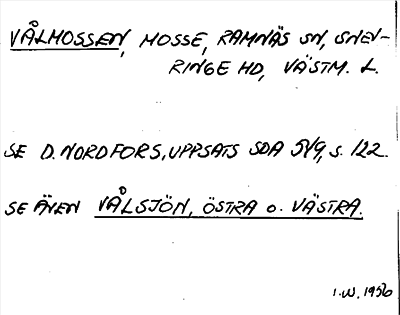 VÅLMOSSEN, MOSSE, RAMNÄS SN, SNEV-
RINGE HD, VÄSTM. L.
SE D. NORDFORS, UPPSATS SDA 519, S. 122.
SE ÄVEN VÅLSJÖN, ÖSTRA O. VÄSTRA.
I.W. 1956